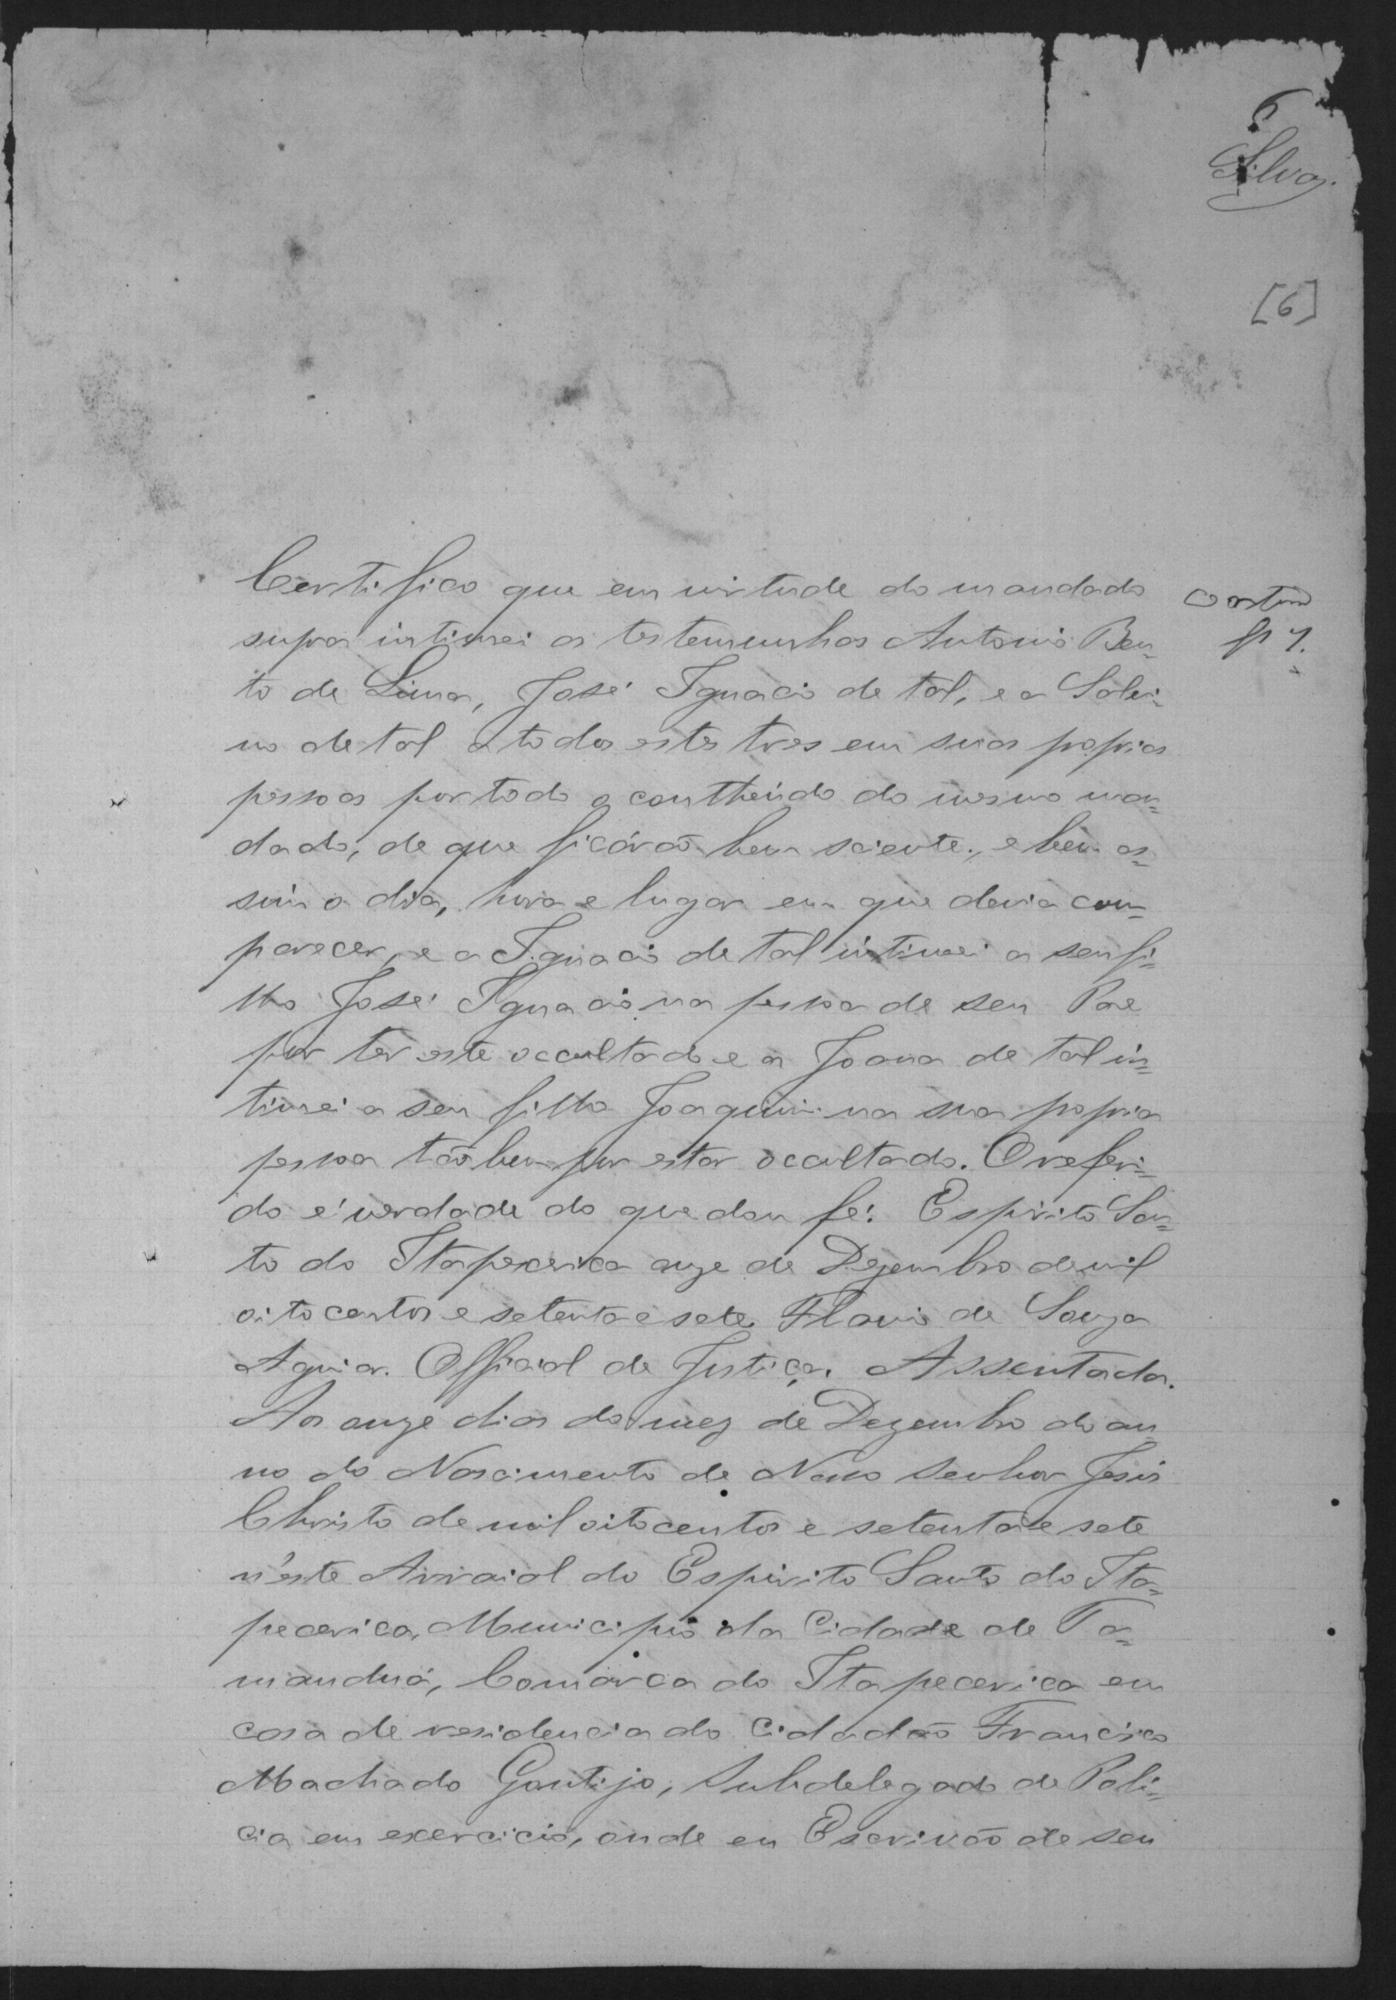 6
Silva.
[6]
Certifico que em virtude do mandado
supra intimei as testemunhas Antonio Ben-
to de Lima, José Ignacio de tal, e a Salvi-
no de tal a todos estes tres em suas proprias
pessoas por todo o contheúdo do mesmo man-
dado, de que ficárão bem sciente., e bem as-
sim o dia, hora e lugar em que devia com-
parecer, e a Ignacio de tal intimei a seu fi-
lho José Ignacio na pessoa de seu Pae
por ter este occultado e a Joana de tal in-
timei a seu filho Joaquim na sua propria
pessoa tão bem por estar occultado. O referi-
do é verdade do que dou fé. Espirito San-
to do Itapecerica onze de Dezembro de mil
oitocentos e setenta e sete Flavio de Souza
Aguiar. Official de Justiça. Assentada.
Aos onze dias do mez de Dezembro do an-
no do Nascimento de Nosso Senhor Jesus
Christo de mil oitocentos e setenta e sete
n'este Arraial do Espirito Santo do Ita-
pecerica, Municipio da Cidade de Ta-
manduá, Comarca do Itapecerica em
casa de residencia do Cidadão Francisco
Machado Gontijo, Subdelegado de Poli-
cia em exercicio, onde eu Escrivão de seu